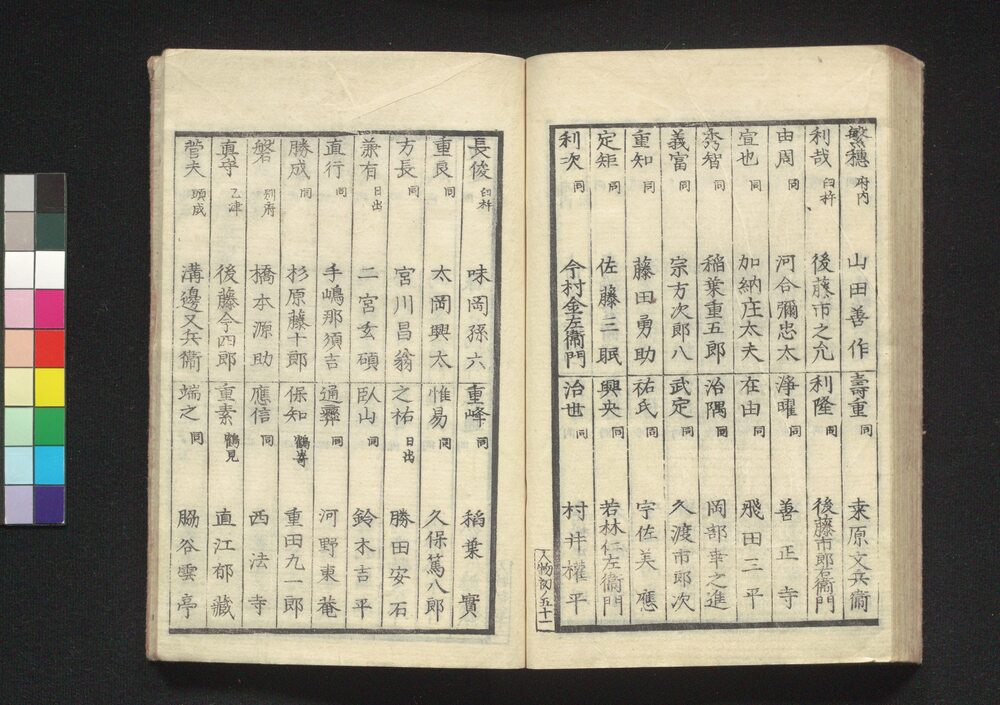 繁穗 府内 山田善作
利哉 臼杵 後藤市之允
由周 同 河合彌忠太
宣也 同 加納庄太夫
秀智 同 稲葉重五郎
義富 同 宗方次郎八
重知 同 藤田勇助
定矩 同 佐藤三眠
利次 同 今村金左衞門
壽重 同 桒原文兵衞
利隆 同 後藤市郎右衞門
淨曜 同 善正寺
在由 同 飛田三平
治隅 同 岡部幸之進
武定 同 久渡市郎次
祐氏 同 宇佐美應
興央 同 若林仁左衞門
治世 同 村井權平
人物初ノ五十一
長俊 臼杵 味岡孫六
重良 同 太岡興太
方長 同 宮川昌翁
兼有 日出 二宮玄碩
直行 同 手嶋那須吉
勝成 同 杉原藤十郎
磐 別府 橋本源助
真守 乙津 後藤今四郎
菅夫 頭成 溝邊又兵衞
重峰 同 稻葉實
惟易 同 久保篤八郎
之祐 日出 勝田安石
臥山 同 鈴木吉平
通彜 同 河野東菴
保知 鶴嵜 重田九一郎
應信 同 西法寺
重素 鶴見 直江郁藏
端之 同 脇谷雲亭